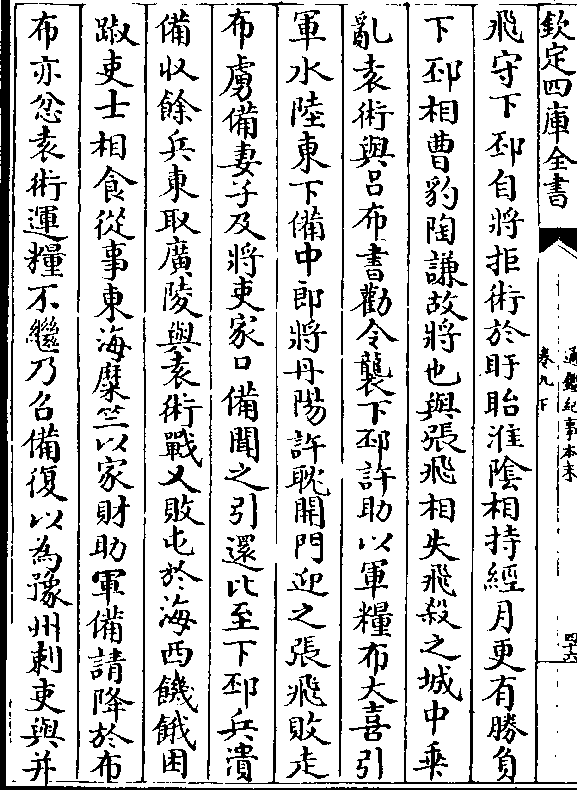 欽定四庫全書
通鑑紀事本末
卷九下
四十六
飛守下邳自將拒術於盱眙淮陰相持經月更有勝負
下邳相曹豹陶謙故將也與張飛相失飛殺之城中乖
亂袁術與呂布書勸令襲下邳許助以軍糧布大喜引
軍水陸東下備中郎將丹陽許耽開門迎之張飛敗走
布虜備妻子及將吏家口備聞之引還比至下邳兵潰
備收餘兵東取廣陵與袁術戰又敗屯於海西饑餓困
踧吏士相食從事東海糜竺以家財助軍備請降於布
布亦忿袁術運糧不繼乃召備復以為豫州刺吏與并